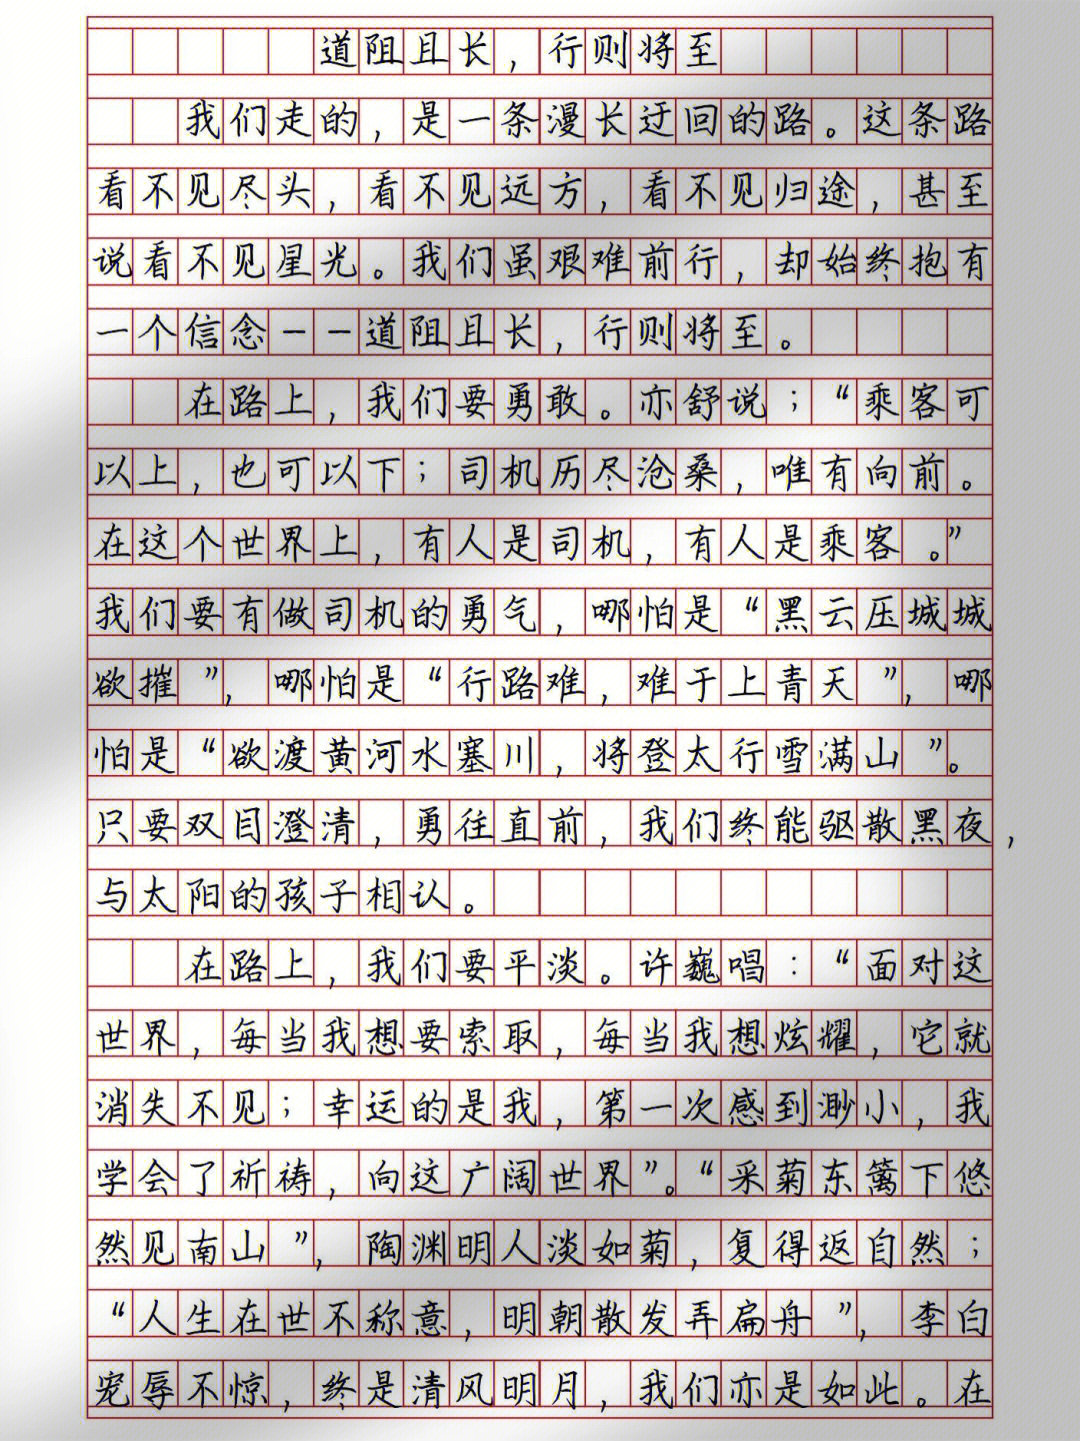 道阻且长，行则将至
我们走的，是一条漫长迂回的路。这条路
看不见尽头，看不见远方，看不见归途，甚至
说看不见星光。我们虽艰难前行，却始终抱有
一个信念－－道阻且长，行则将至。
在路上，我们要勇敢。亦舒说；“乘客可
以上，也可以下；司机历尽沧桑，唯有向前。
在这个世界上，有人是司机，有人是乘客。”
我们要有做司机的勇气，哪怕是“黑云压城城
欲摧”，哪怕是“行路难，难于上青天”，哪
怕是“欲渡黄河水塞川，将登太行雪满山”。
只要双目澄清，勇往直前，我们终能驱散黑夜，
与太阳的孩子相认。
在路上，我们要平淡。许巍唱：“面对这
世界，每当我想要索取，每当我想炫耀，它就
消失不见；幸运的是我，第一次感到渺小，我
学会了祈祷，向这广阔世界”。“采菊东篱下悠
然见南山”，陶渊明人淡如菊，复得返自然；
“人生在世不称意，明朝散发弄扁舟”，李白
宠辱不惊，终是清风明月，我们亦是如此。在